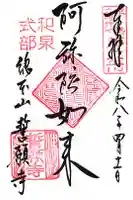 奉拝
令和八年四月十一日
阿弥陀如来
和泉
式部
誓願寺